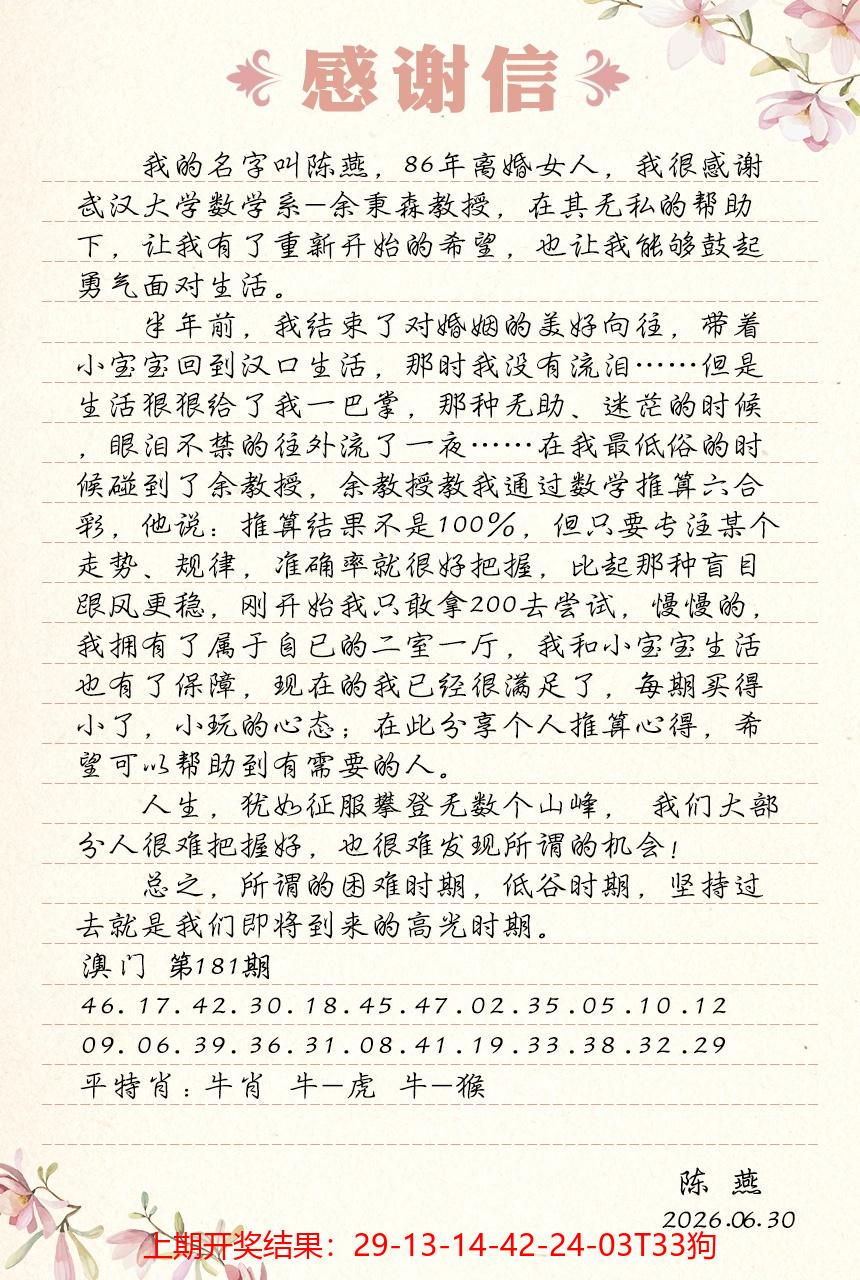 感谢信
我的名字叫陈燕，86年离婚女人，我很感谢
武汉大学数学系—余秉森教授，在其无私的帮助
下，让我有了重新开始的希望，也让我能够鼓起
勇气面对生活。
半年前，我结束了对婚姻的美好向往，带着
小宝宝回到汉口生活，那时我没有流泪……但是
生活狠狠给了我一巴掌，那种无助、迷茫的时候
，眼泪不禁的往外流了一夜……在我最低俗的时
候碰到了余教授，余教授教我通过数学推算六合
彩，他说：推算结果不是100%，但只要专注某个
走势、规律，准确率就很好把握，比起那种盲目
跟风更稳，刚开始我只敢拿200去尝试，慢慢的，
我拥有了属于自已的二室一厅，我和小宝宝生活
也有了保障，现在的我已经很满足了，每期买得
小了，小玩的心态；在此分享个人推算心得，希
望可以帮助到有需要的人。
人生，犹如征服攀登无数个山峰， 我们大部
分人很难把握好，也很难发现所谓的机会！
总之，所谓的困难时期，低谷时期，坚持过
去就是我们即将到来的高光时期。
澳门 第181期
46.17.42.30.18.45.47.02.35.05.10.12
09.06.39.36.31.08.41.19.33.38.32.29
平特肖：牛肖 牛—虎 牛—猴
陈 燕
2026.06.30
上期开奖结果：29-13-14-42-24-03T33狗